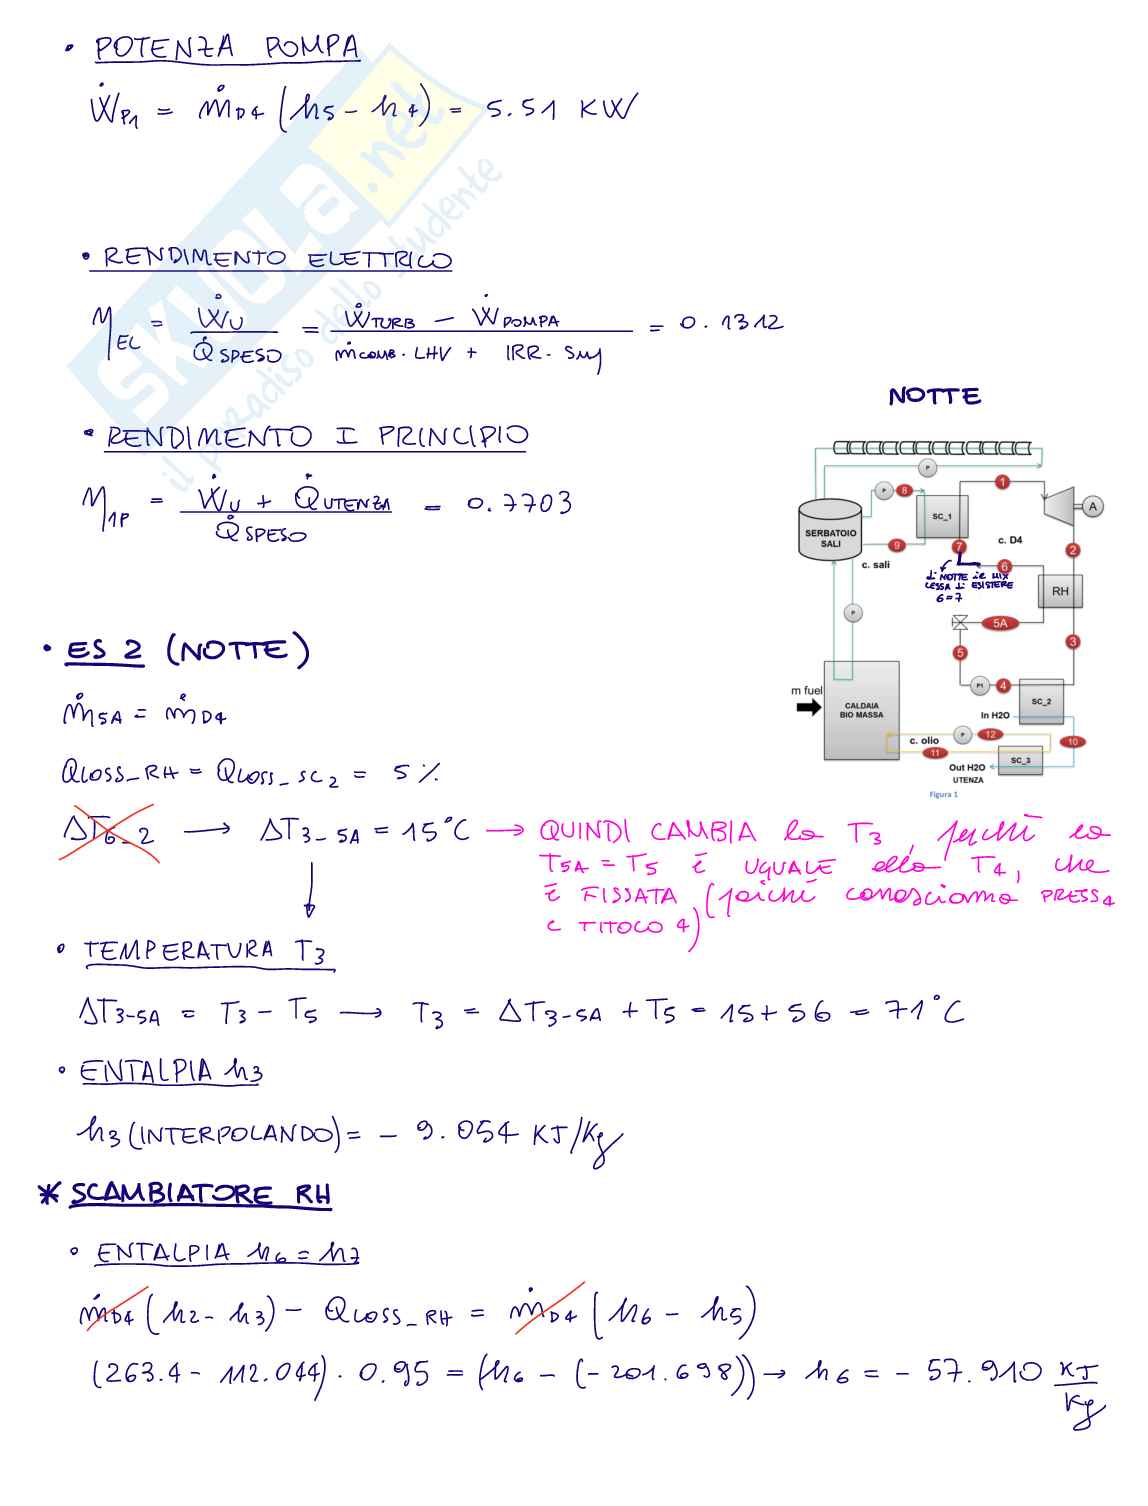 • POTENZA POMPA
ẆP1 = ṁD4 (h5 - h4) = 5.51 KW
SKUOLA.net
il paradiso dello studente
• RENDIMENTO ELETTRICO
ηEL = ẆU / Q̇SPESO = (ẆTURB - ẆPOMPA) / (ṁCOMB · LHV + IRR · Sup) = 0.1312
• RENDIMENTO I PRINCIPIO
η1P = (ẆU + Q̇UTENZA) / Q̇SPESO = 0.7703
NOTTE
P
P 8 1
SERBATOIO SALI
SC_1
A
9 7
c. D4
2
c. sali
6
di NOTTE il MIX
CESSA di ESISTERE
6=7
RH
P
5A
3
5
m fuel
P1 4
SC_2
CALDAIA BIO MASSA
In H2O
c. olio
P 12 10
11
SC_3
Out H2O
UTENZA
Figura 1
• ES 2 (NOTTE)
ṁ5A = ṁD4
QLOSS_RH = QLOSS_SC2 = 5 %
ΔT6_2 → ΔT3_5A = 15°C → QUINDI CAMBIA la T3, perché la
T5A = T5 è UGUALE alla T4, che
È FISSATA (poiché conosciamo PRESS4
E TITOLO 4)
• TEMPERATURA T3
ΔT3-5A = T3 - T5 → T3 = ΔT3-5A + T5 = 15 + 56 = 71°C
• ENTALPIA h3
h3 (INTERPOLANDO) = - 9.054 KJ/Kg
* SCAMBIATORE RH
• ENTALPIA h6 = h7
ṁD4 (h2 - h3) - QLOSS_RH = ṁD4 (h6 - h5)
(263.4 - 112.044) · 0.95 = (h6 - (-201.698)) → h6 = - 57.910 KJ/Kg